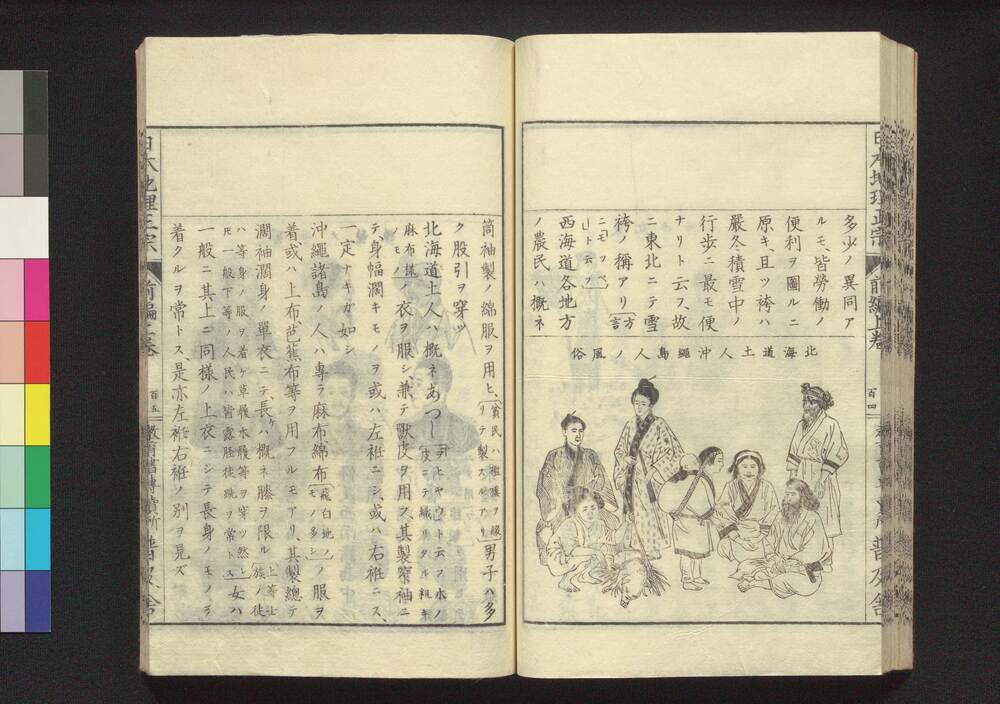 日本地理正宗
前編上巻
百四
普及舎
多少ノ異同ア
ルモ、皆勞働ノ
便利ヲ圖ルニ
原キ、且ツ袴ハ
嚴冬積雪中ノ
行步ニ最モ便
ナリト云フ、故
ニ東北ニテ雪
袴ノ稱アリ〔方言
ニ「モッペ」
ト云フ〕
西海道各地方
ノ農民ハ概ネ
北海道土人沖繩島人ノ風俗
筒袖製ノ綿服ヲ用ヒ、
男子ハ多
ク股引ヲ穿ツ
北海道土人ハ概ネあつし
麻布樣
ノモノ
ノ衣ヲ服シ、兼テ獸皮ヲ用フ、其製窄袖ニ
テ、身幅濶キモノヲ或ハ左袵ニシ、或ハ右袵ニス、
一定ナキガ如シ
沖繩諸島ノ人ハ專ラ麻布、綿布〔飛白地ノ
モノ多シ〕ノ服ヲ
着、或ハ上布芭蕉布等ヲ用フルモアリ、其製總テ
濶袖濶身ノ單衣ニテ、長ケハ概ネ膝ヲ限ル〔上等士
族ノ徒
ハ等身ノ服ヲ着ケ草履木履等ヲ穿ツ然レ
𪜈一般下等ノ人民ハ皆露脛徒跣ヲ常トス〕女ハ
一般ニ其上ニ同樣ノ上衣ニシテ長身ノモノヲ
着クルヲ常トス、是亦左袵右袵ノ別ヲ見ズ
日本地理正宗
前編上巻
百五
教育書專賣所
普及舎